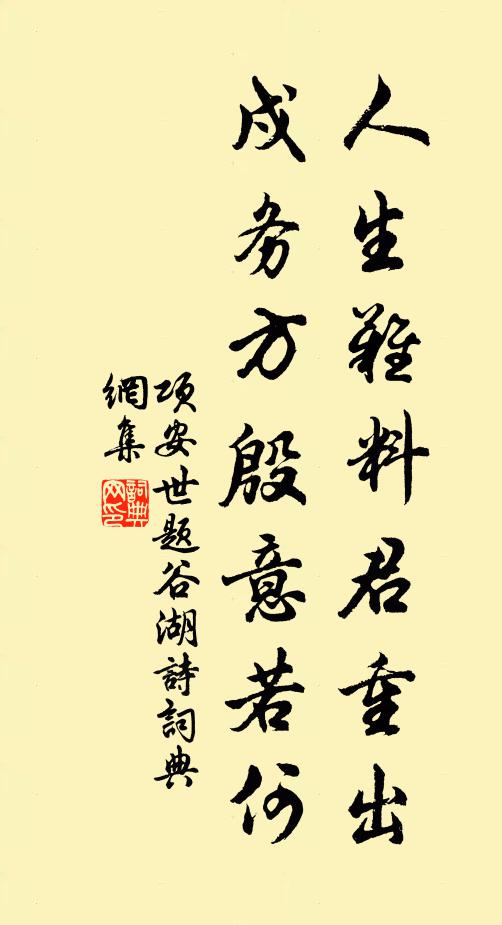 人生難料君重出
戍务方殷意若何
项安世题谷湖詩詞典
網集
詞典
网印